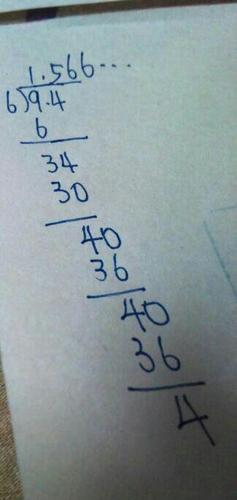 1.566...
6)9.4
6
34
30
40
36
40
36
4